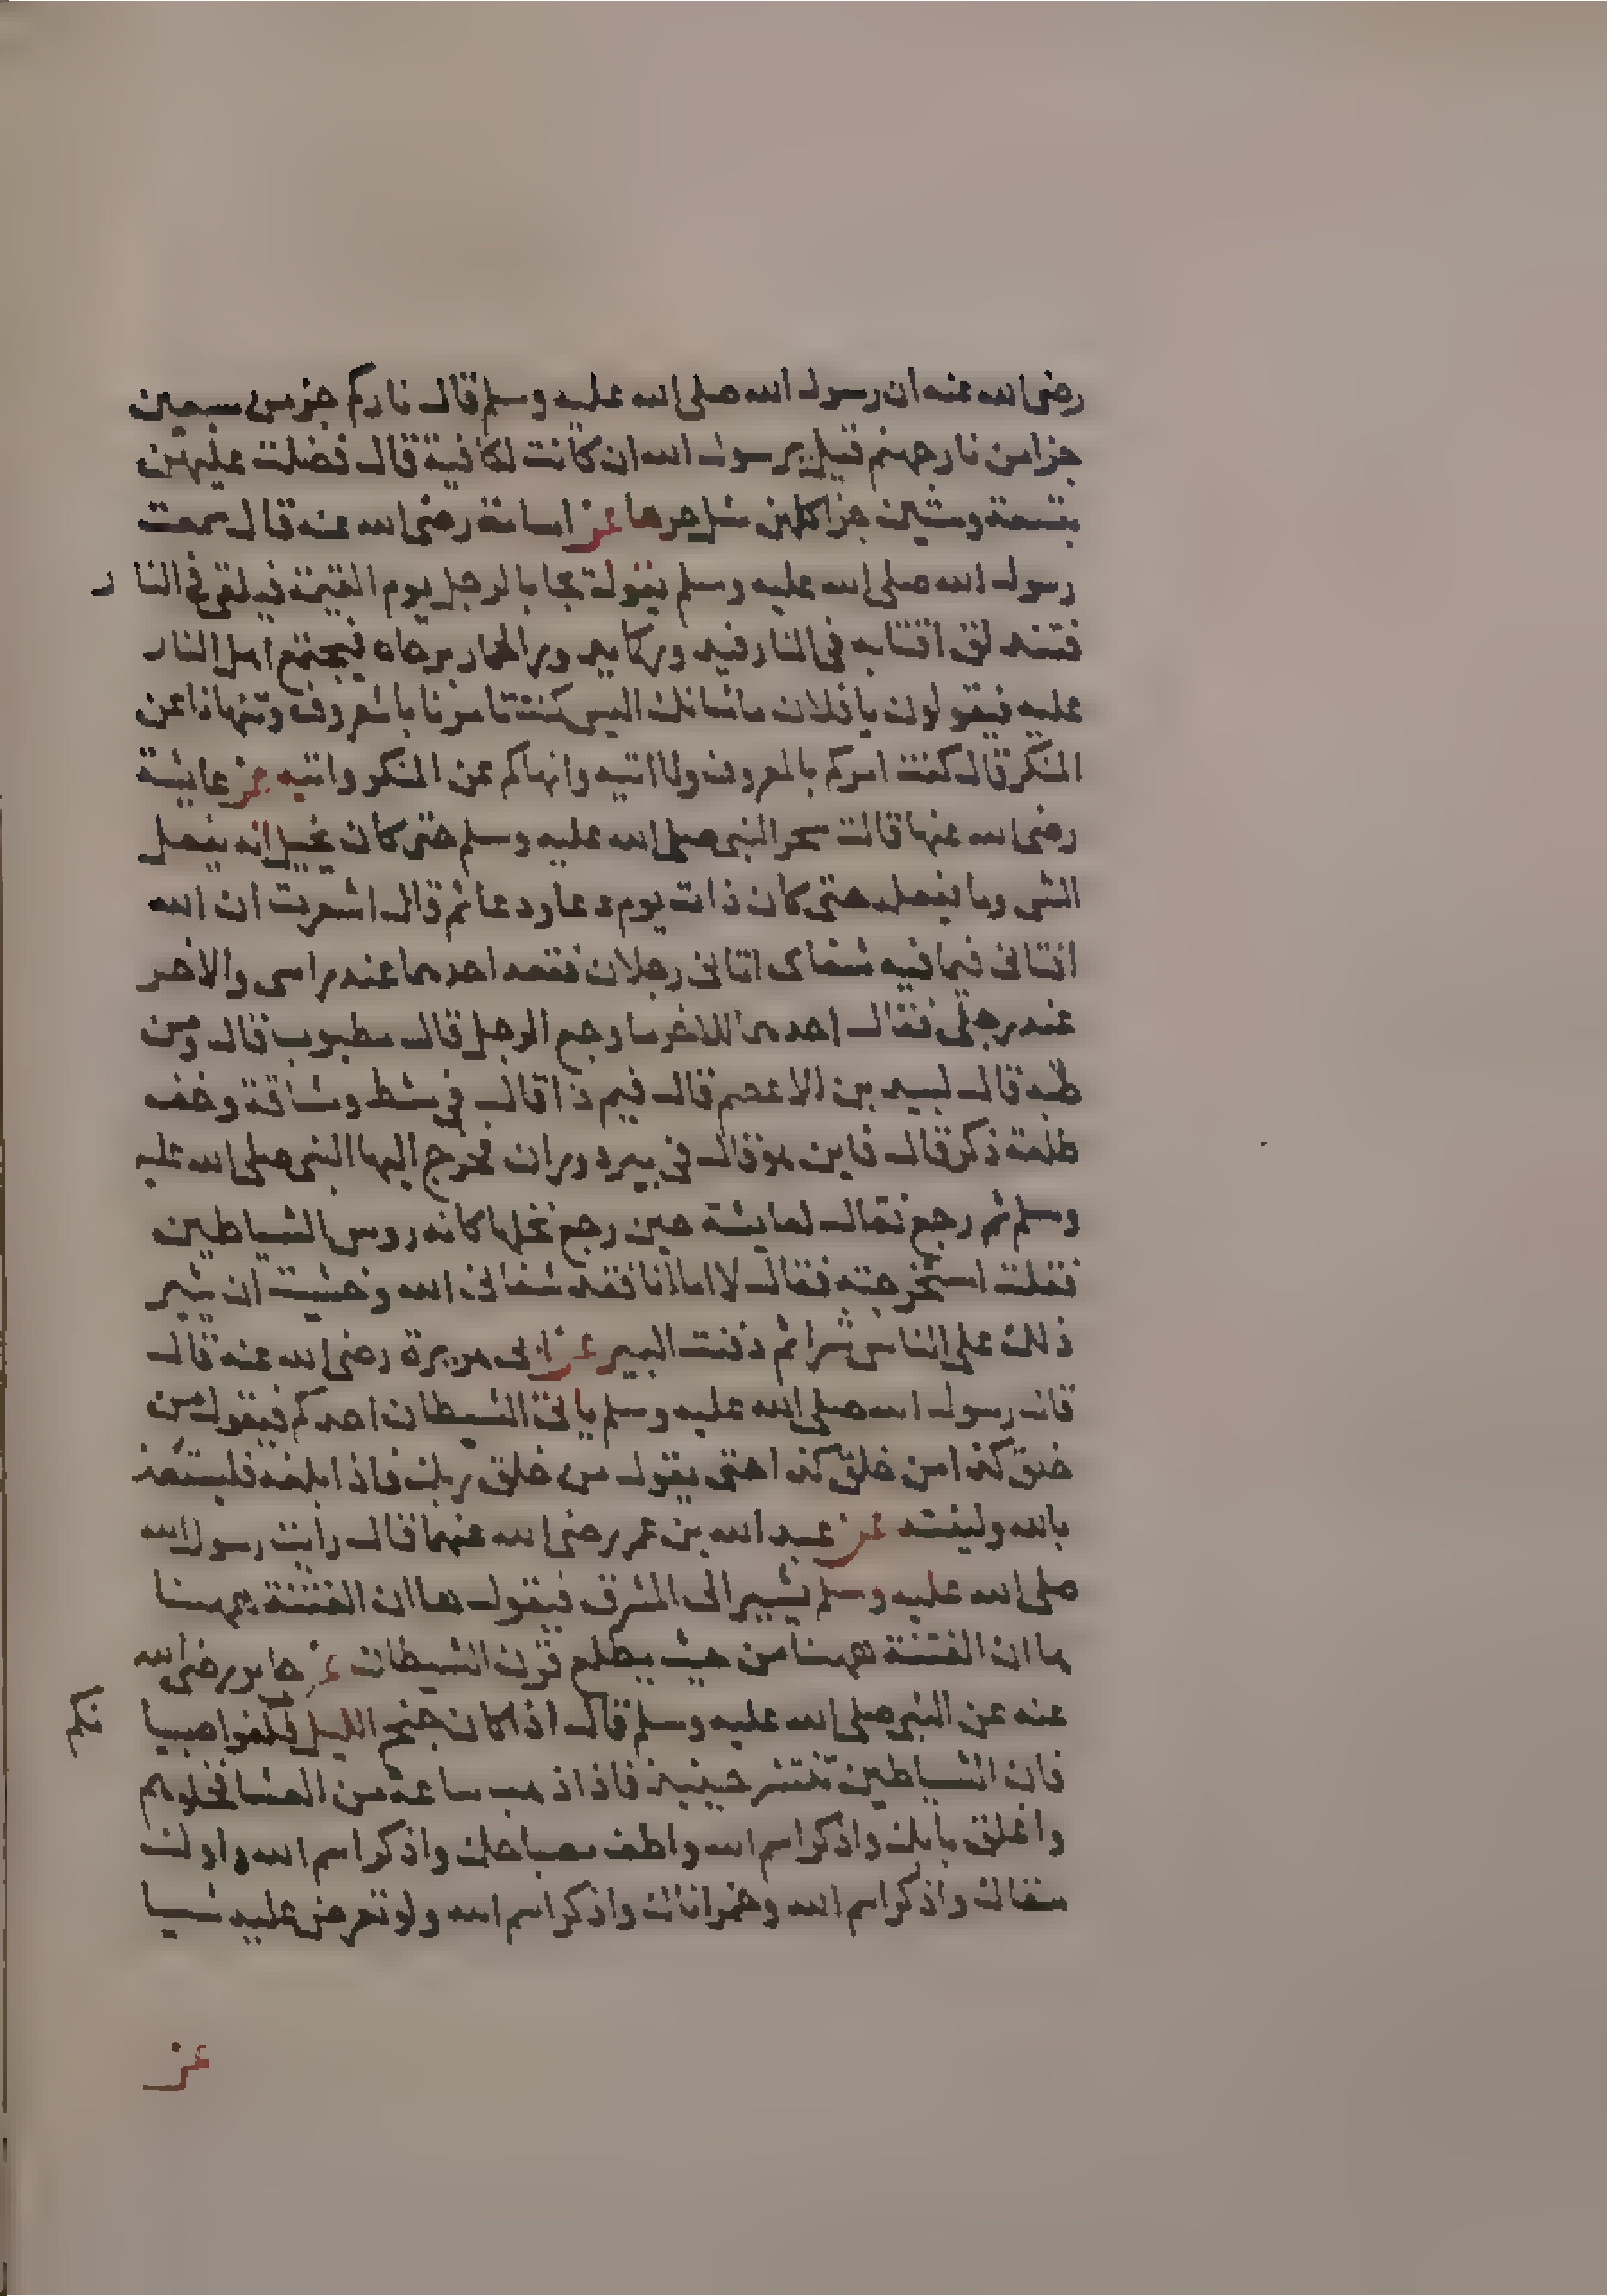 رضى الله عنه ان رسول الله صلى الله عليه وسلم قال ناركم جز من سبعين
جزا من نار جهنم قيل يرسول الله ان كانت لكافية قال فضلت عليهن
بتسعة وستين جزا كلهن مثل حرها عن اسامة رضى الله عنه قال سمعت
رسول الله صلى الله عليه وسلم يقول يجا بالرجل يوم القيمة فيلقى فى النار
فتندلق اقتابه فى النار فيدور كما يدور الحمار برحاه فيجتمع اهل النار
عليه فيقولون يا فلان ما شانك اليس كنت تامرنا بالمعروف وتنهانا عن
المنكر قال كنت امركم بالمعروف ولا اتيه وانهاكم عن المنكر واتيه عن عايشة
رضى الله عنها قالت سحر النبى صلى الله عليه وسلم حتى كان يخيل انه يفعل
الشى وما يفعله حتى كان ذات يوم دعا ودعا ثم قال اشعرت ان الله
افتانى فيما فيه شفاى اتانى رجلان فقعد احدهما عند راسى والاخر
عند رجلى فقال احدهما للاخر ما وجع الرجل قال مطبوب قال ومن
طبه قال لبيد بن الاعصم قال فيم ذا قال فى مشط ومشاقة وجف
طلعة ذكر قال فاين هو قال فى بير ذروان فخرج اليها النبى صلى الله عليه
وسلم ثم رجع فقال لعايشة حين رجع نخلها كانه روس الشياطين
فقلت استخرجته فقال لا اما انا فقد شفانى الله وخشيت ان يثير
ذلك على الناس شرا ثم دفنت البير عن ابى هريرة رضى الله عنه قال
قال رسول الله صلى الله عليه وسلم ياتى الشيطان احدكم فيقول من
خلق كذا من خلق كذا حتى يقول من خلق ربك فاذا بلغه فليستعذ
بالله ولينته عن عبد الله بن عمر رضى الله عنهما قال رايت رسول الله
صلى الله عليه وسلم يشير الى المشرق فيقول ها ان الفتنة ههنا
ها ان الفتنة ههنا من حيث يطلع قرن الشيطان عن جابر رضى الله
عنه عن النبى صلى الله عليه وسلم قال اذا كان جنح الليل فكفوا صبيا
نكم
فان الشياطين تنتشر حينيذ فاذا ذهب ساعة من العشا فخلوهم
واغلق بابك واذكر اسم الله واطف مصباحك واذكر اسم الله واوك
سقاك واذكر اسم الله وخمر اناك واذكر اسم الله ولو تعرض عليه شيا
عن